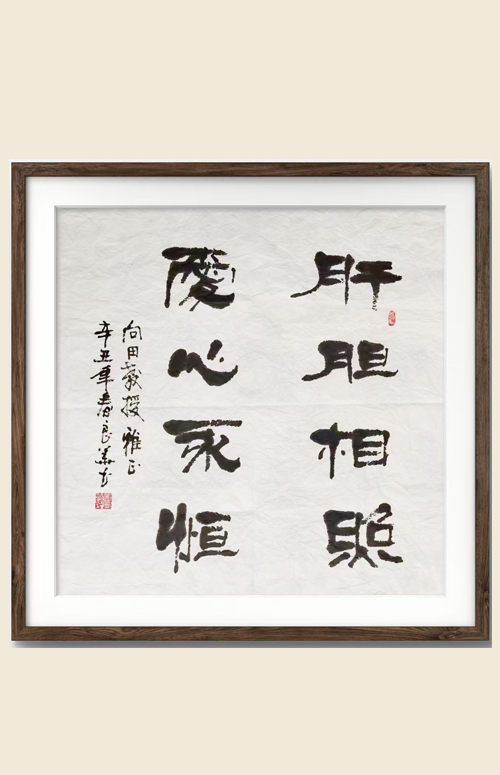 肝胆相照
愛心永恒
向田教授雅正
辛丑年春良华书